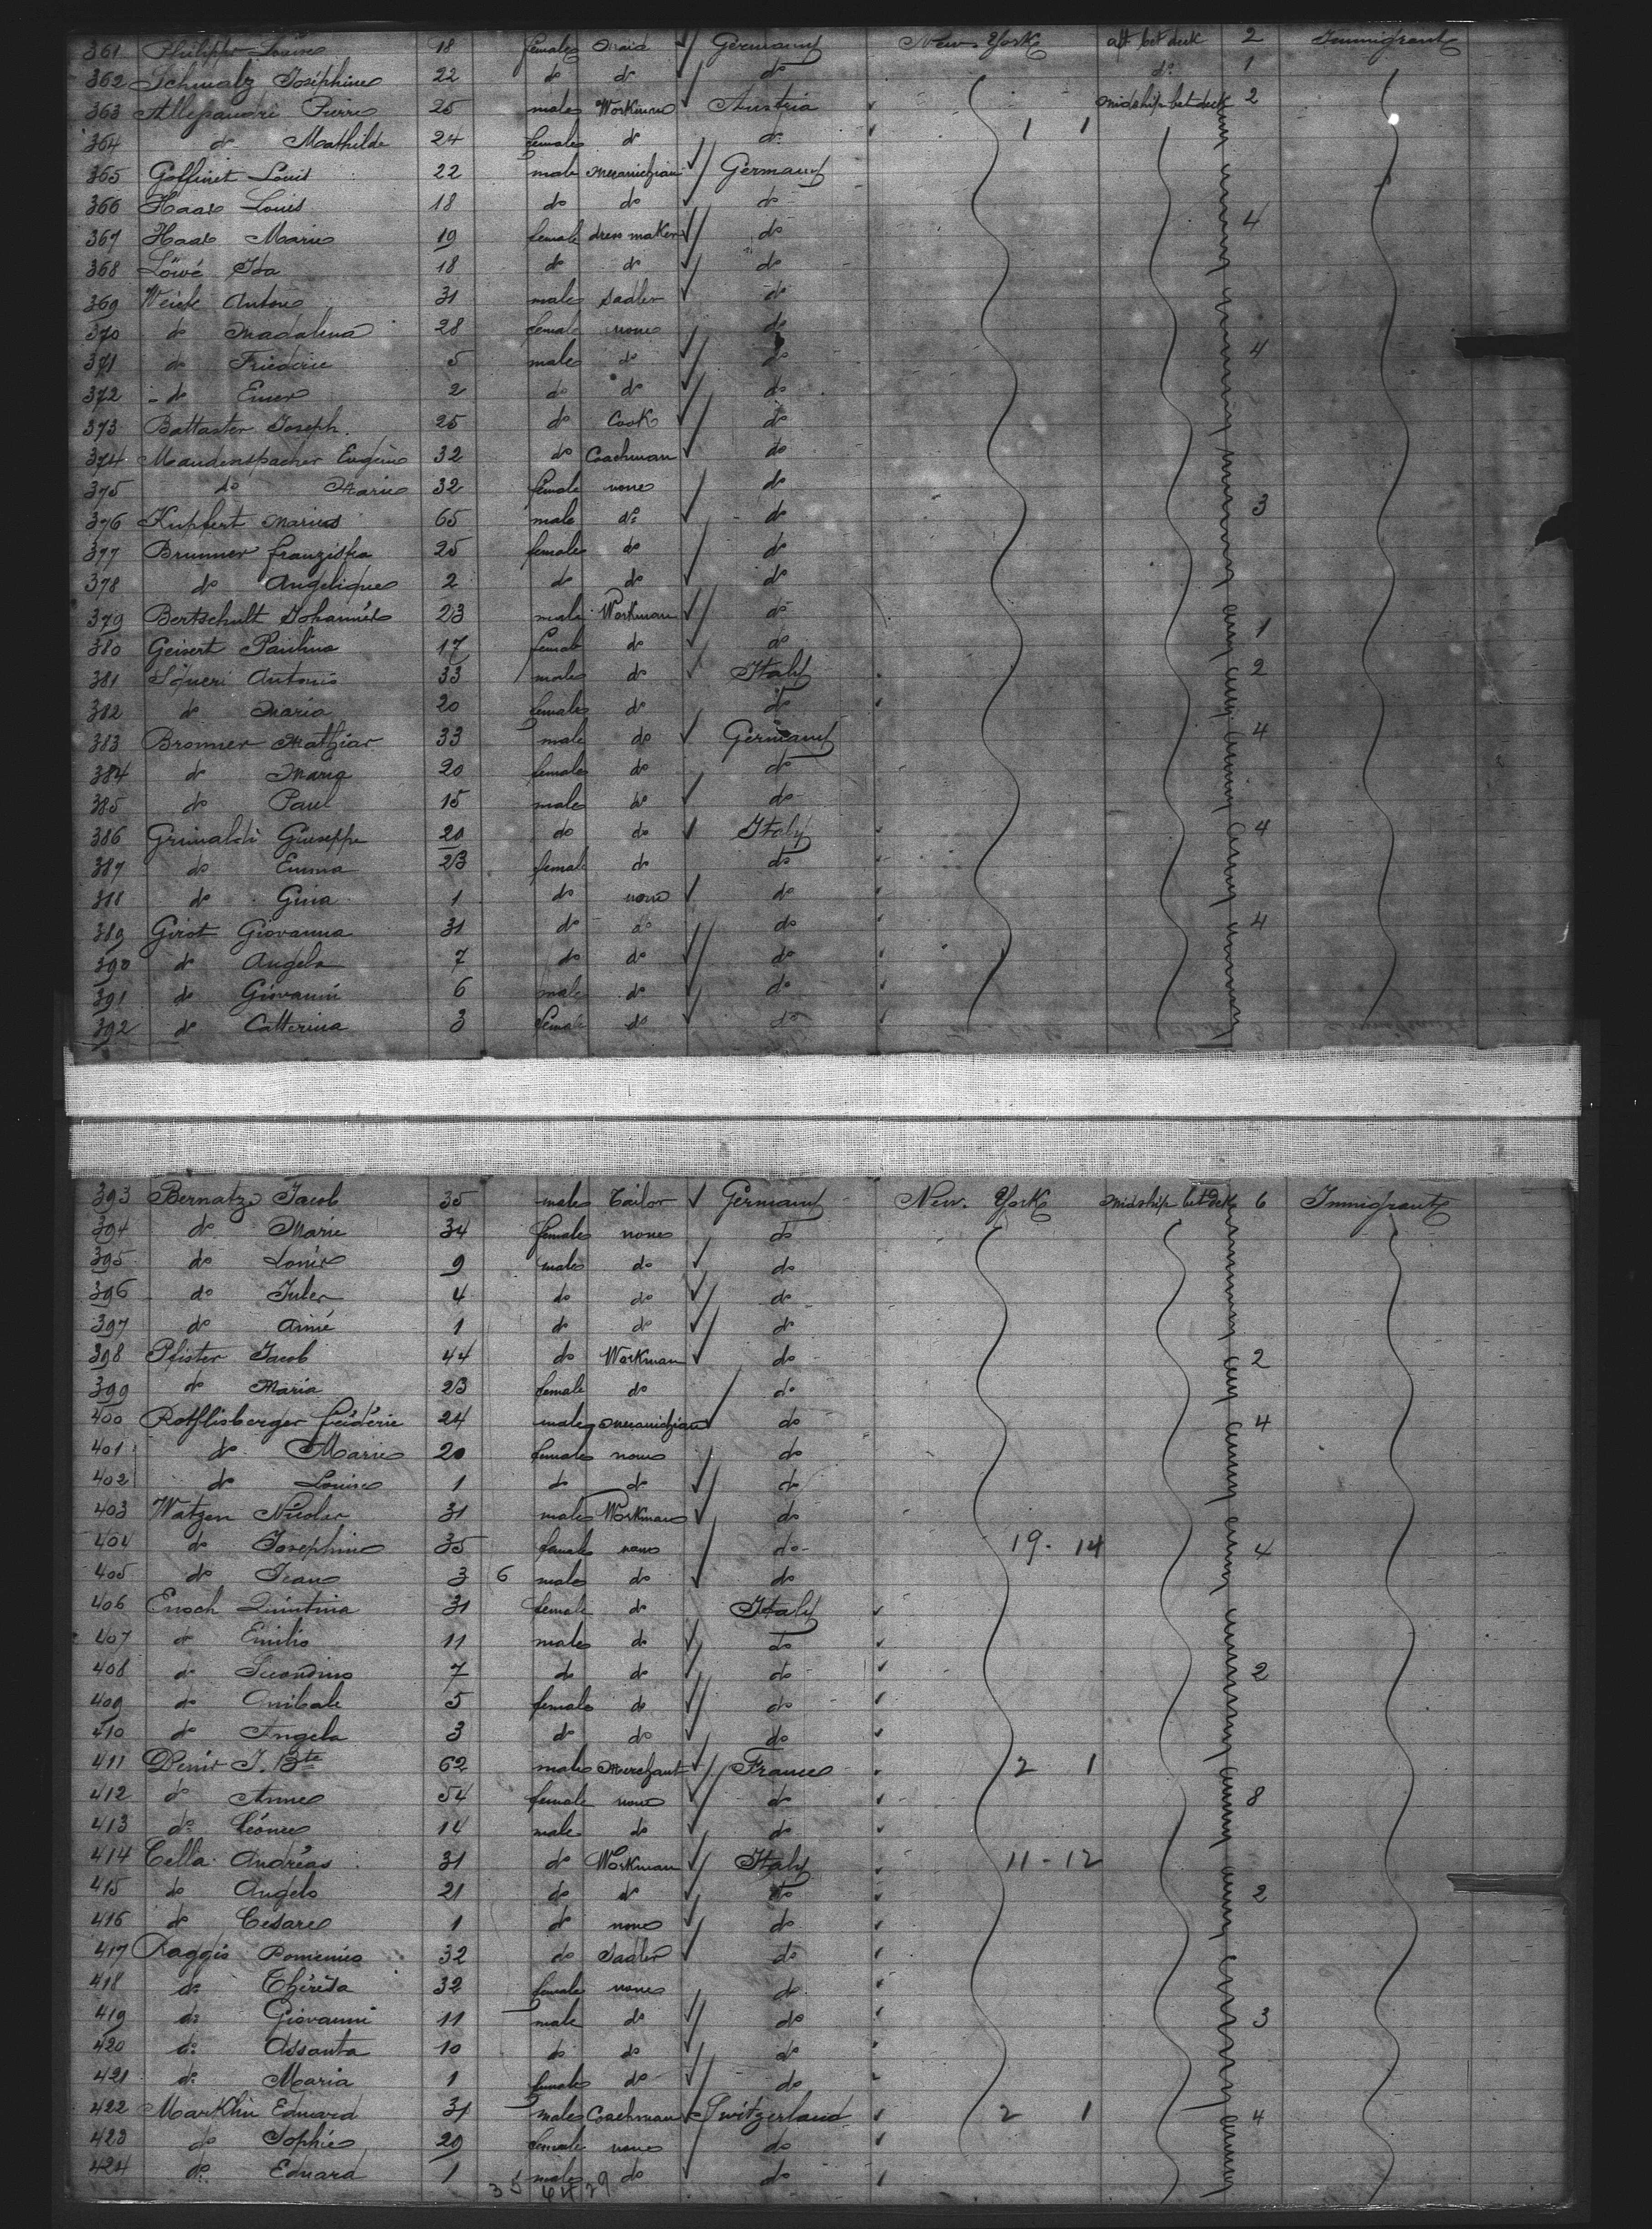 361 Philippe Louise 18 female Maid Germany New York aft bet deck 2 Immigrant
362 Schwalz Joséphine 22 do do do do 1
363 Allessandri Pierre 25 male Workman Austria midship bet deck 2
364 do Mathilde 24 female do do 1 1
365 Goffinet Louis 22 male mecanichian Germany
366 Haas Louis 18 do do do 4
367 Haas Marie 19 female dress maker do
368 Löwé Ida 18 do do do
369 Weick Antone 31 male Sadler do
370 do Madalena 28 female none do
371 do Friederic 5 male do do 4
372 do 2 do do do
373 Battaster Joseph 25 do Cook do
374 Maudenspacher Eugène 32 do Coachman do
375 do Marie 32 female none do
376 Kuphert Marius 65 male do do 3
377 Brunner Franziska 25 female do do
378 do Angelique 2 do do do
379 Bertschult Johannés 23 male Workman do 1
380 Geisert Paulina 17 female do do
381 Antonio 33 male do Italy 2
382 do Maria 20 female do do
383 Bronner Mathias 33 male do Germany 4
384 do Maria 20 female do do
385 do Paul 15 male do do
386 Grimaldi Giuseppe 20 do do Italy 4
387 do Emma 23 female do do
388 do Gina 1 do none do
389 Girot Giovanna 31 do do do 4
390 do Angela 7 do do do
391 do Giovanni 6 male do do
392 do Catterina 3 female do do
393 Bernatz Jacob 35 male Tailor Germany New York midship bet deck 6 Immigrant
394 do Marie 34 female none do
395 do Louis 9 male do do
396 do Jules 4 do do do
397 do Aimé 1 do do do
398 Pfister Jacob 44 do Workman do 2
399 do Maria 23 female do do
400 Rothlisberger Fréderic 24 male mecanichian do 4
401 do Marie 20 female none do
402 do Louise 1 do do do
403 Watzen Nicolas 31 male Workman do
404 do Josephine 35 female none do 19 - 14 4
405 do Jean 3 6 male do do
406 Enoch Quintina 31 female do Italy
407 do Emilio 11 male do do
408 do Secondino 7 do do do 2
409 do Anibale 5 female do do
410 do Angela 3 do do do
411 Denis J. Bte 62 male Merchant France 2 1
412 do Anne 54 female none do 8
413 do Léonce 14 male do do
414 Cella Andréas 31 do Workman Italy 11 - 12
415 do Angelo 21 do do do 2
416 do Cesare 1 do none do
417 Raggio Domenico 32 do Sadler do
418 do Thérésa 32 female none do
419 do Giovanni 11 male do do 3
420 do Assanta 10 do do do
421 do Maria 1 female do do
422 Marklin Eduard 31 male Coachman Switzerland 2 1 4
423 do Sophie 29 female none do
424 do Eduard 1 male do do